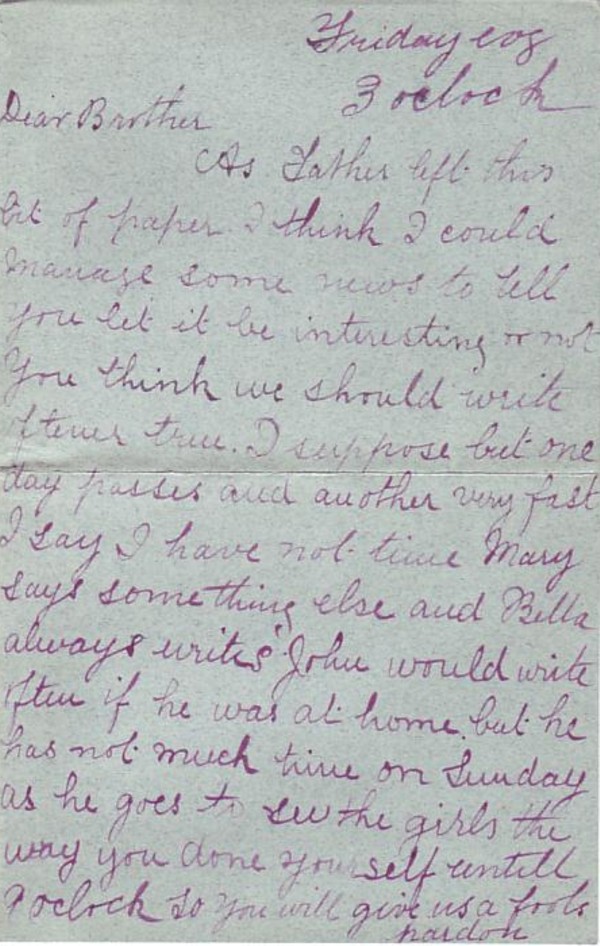 Friday evg
3 oclock
Dear Brother
As Father left this
bit of paper I think I could
manage some news to tell
you let it be interesting or not
You think we should write
oftener true. I suppose but one
day passes and another very fast
I say I have not time Mary
says something else and Bella
always writes John would write
often if he was at home but he
has not much time on Sunday
as he goes to see the girls the
way you done yourself untill
9 oclock so you will give us a fools
pardon